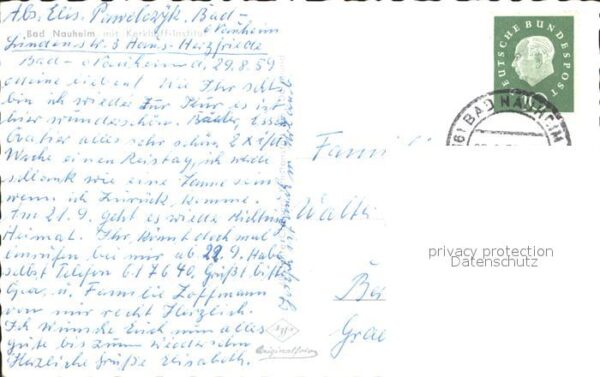 Abs. Elis. Pawelczyk, Bad-
Nauheim
Bad Nauheim mit Kerkhoff-Institut
Lindenstr. 3 Haus-
Bad-Nauheim d. 29.8.59
Meine Lieben! Wie Ihr seht
bin ich wieder zur Kur es ist
hier wunderschön. Bäder, Essen
Quatier alles sehr schön. 2 X i/der
Woche einen Reistag, ich werde
schlank wie eine Tanne sein
wenn ich zurück komme.
Am 21.9. geht es wieder Richtung
Heimat. Ihr könnt doch mal
anrufen bei mir ab 22.9. Habe
selbst Telefon 617640. Grüßt bitte
u. Familie Hoffmann
von mir recht herzlich.
Ich wünsche Euch nun alles
gute bis zum wiedersehen
Herzliche Grüße Elisabeth.
DEUTSCHE BUNDESPOST
10
(16) BAD NAUHEIM
Famili
Walte
privacy protection
Datenschutz
Be
Gra
Agfa
Originalfoto